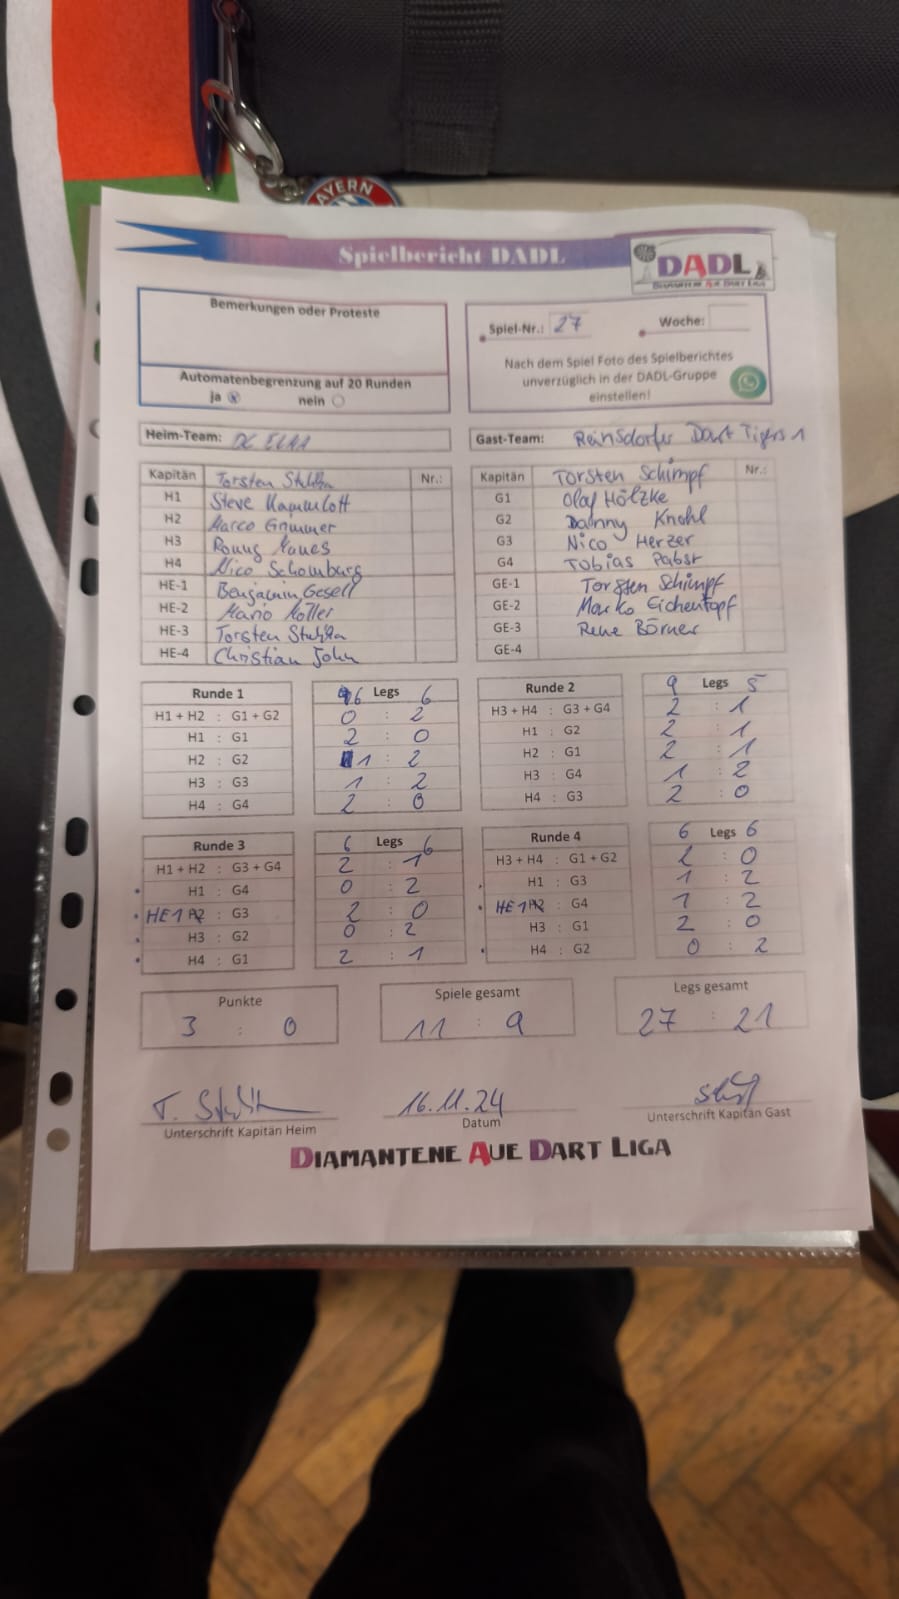 BAYERN
Spielbericht DADL
DADL
DIAMANTENE AUE DART LIGA
Bemerkungen oder Proteste
Automatenbegrenzung auf 20 Runden
ja nein
Spiel-Nr.: 27 Woche:
Nach dem Spiel Foto des Spielberichtes
unverzüglich in der DADL-Gruppe
einstellen!
Heim-Team: DC
Gast-Team: Reinsdorfer Dart Tigers 1
Kapitän Torsten Nr.:
H1 Steve
H2 Marco
H3 Ronny
H4 Nico Schomburg
HE-1 Benjamin Gesell
HE-2 Mario
HE-3 Torsten
HE-4 Christian John
Kapitän Torsten Schimpf Nr.:
G1 Olaf Hölzke
G2 Danny Knohl
G3 Nico Herzer
G4 Tobias Pabst
GE-1 Torsten Schimpf
GE-2 Marko Eichentopf
GE-3 Rene Börner
GE-4
Runde 1 6 Legs 6
H1 + H2 : G1 + G2 0 : 2
H1 : G1 2 : 0
H2 : G2 1 : 2
H3 : G3 1 : 2
H4 : G4 2 : 0
Runde 2 9 Legs 5
H3 + H4 : G3 + G4 2 : 1
H1 : G2 2 : 1
H2 : G1 2 : 1
H3 : G4 1 : 2
H4 : G3 2 : 0
Runde 3 6 Legs 6
H1 + H2 : G3 + G4 2 : 1
H1 : G4 0 : 2
HE1 : G3 2 : 0
H3 : G2 0 : 2
H4 : G1 2 : 1
Runde 4 6 Legs 6
H3 + H4 : G1 + G2 2 : 0
H1 : G3 1 : 2
HE1 : G4 1 : 2
H3 : G1 2 : 0
H4 : G2 0 : 2
Punkte
3 : 0
Spiele gesamt
11 : 9
Legs gesamt
27 : 21
16.11.24
Unterschrift Kapitän Heim
Datum
Unterschrift Kapitän Gast
DIAMANTENE AUE DART LIGA